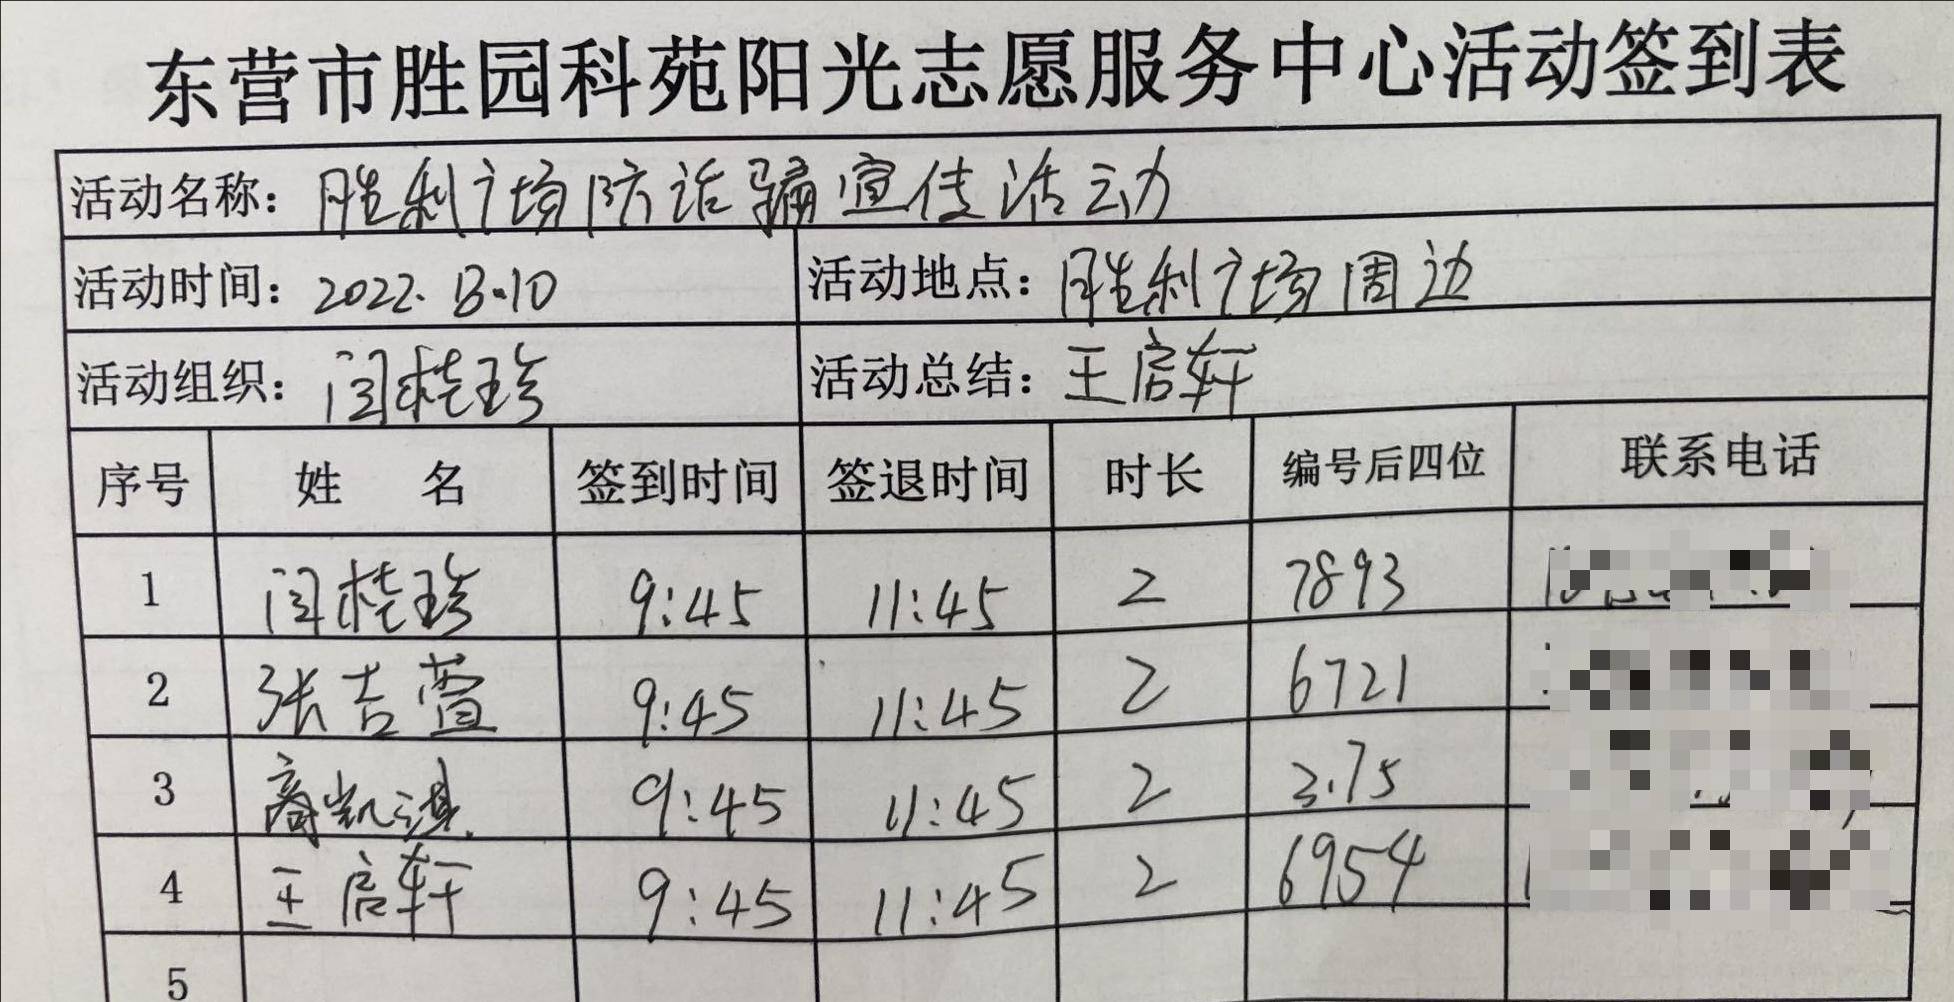 东营市胜园科苑阳光志愿服务中心活动签到表
活动名称：胜利广场防诈骗宣传活动
活动时间：2022.13.10 活动地点：胜利广场周边
活动组织：闫桂珍 活动总结：王启轩
序号 姓名 签到时间 签退时间 时长 编号后四位 联系电话
1 闫桂珍 9:45 11:45 2 7893
2 张吉萱 9:45 11:45 2 6721
3 商凯 9:45 11:45 2
4 王启轩 9:45 11:45 2 6954
5